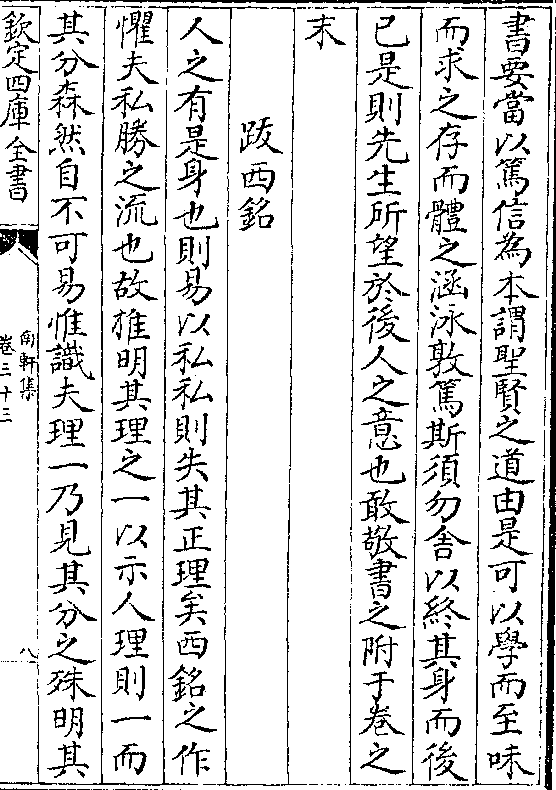 書要當以篤信為本謂聖賢之道由是可以學而至味
而求之存而體之涵泳敦篤斯須勿舍以終其身而後
已是則先生所望於後人之意也敢敬書之附于卷之
末
跋西銘
人之有是身也則易以私私則失其正理矣西銘之作
懼夫私勝之流也故推明其理之一以示人理則一而
其分森然自不可易惟識夫理一乃見其分之殊明其
欽定四庫全書
南軒集
卷三十三
八